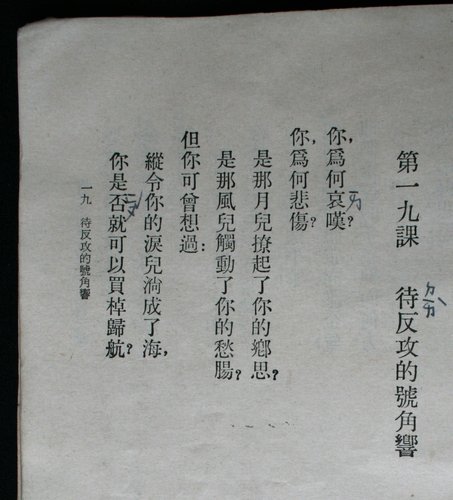 第一九課　待反攻的號角響
你,爲何哀嘆?
你,爲何悲傷?
是那月兒撩起了你的鄉思?
是那風兒觸動了你的愁腸?
但你可曾想過:
縱令你的淚兒淌成了海,
你是否就可以買棹歸航?
一九　待反攻的號角響